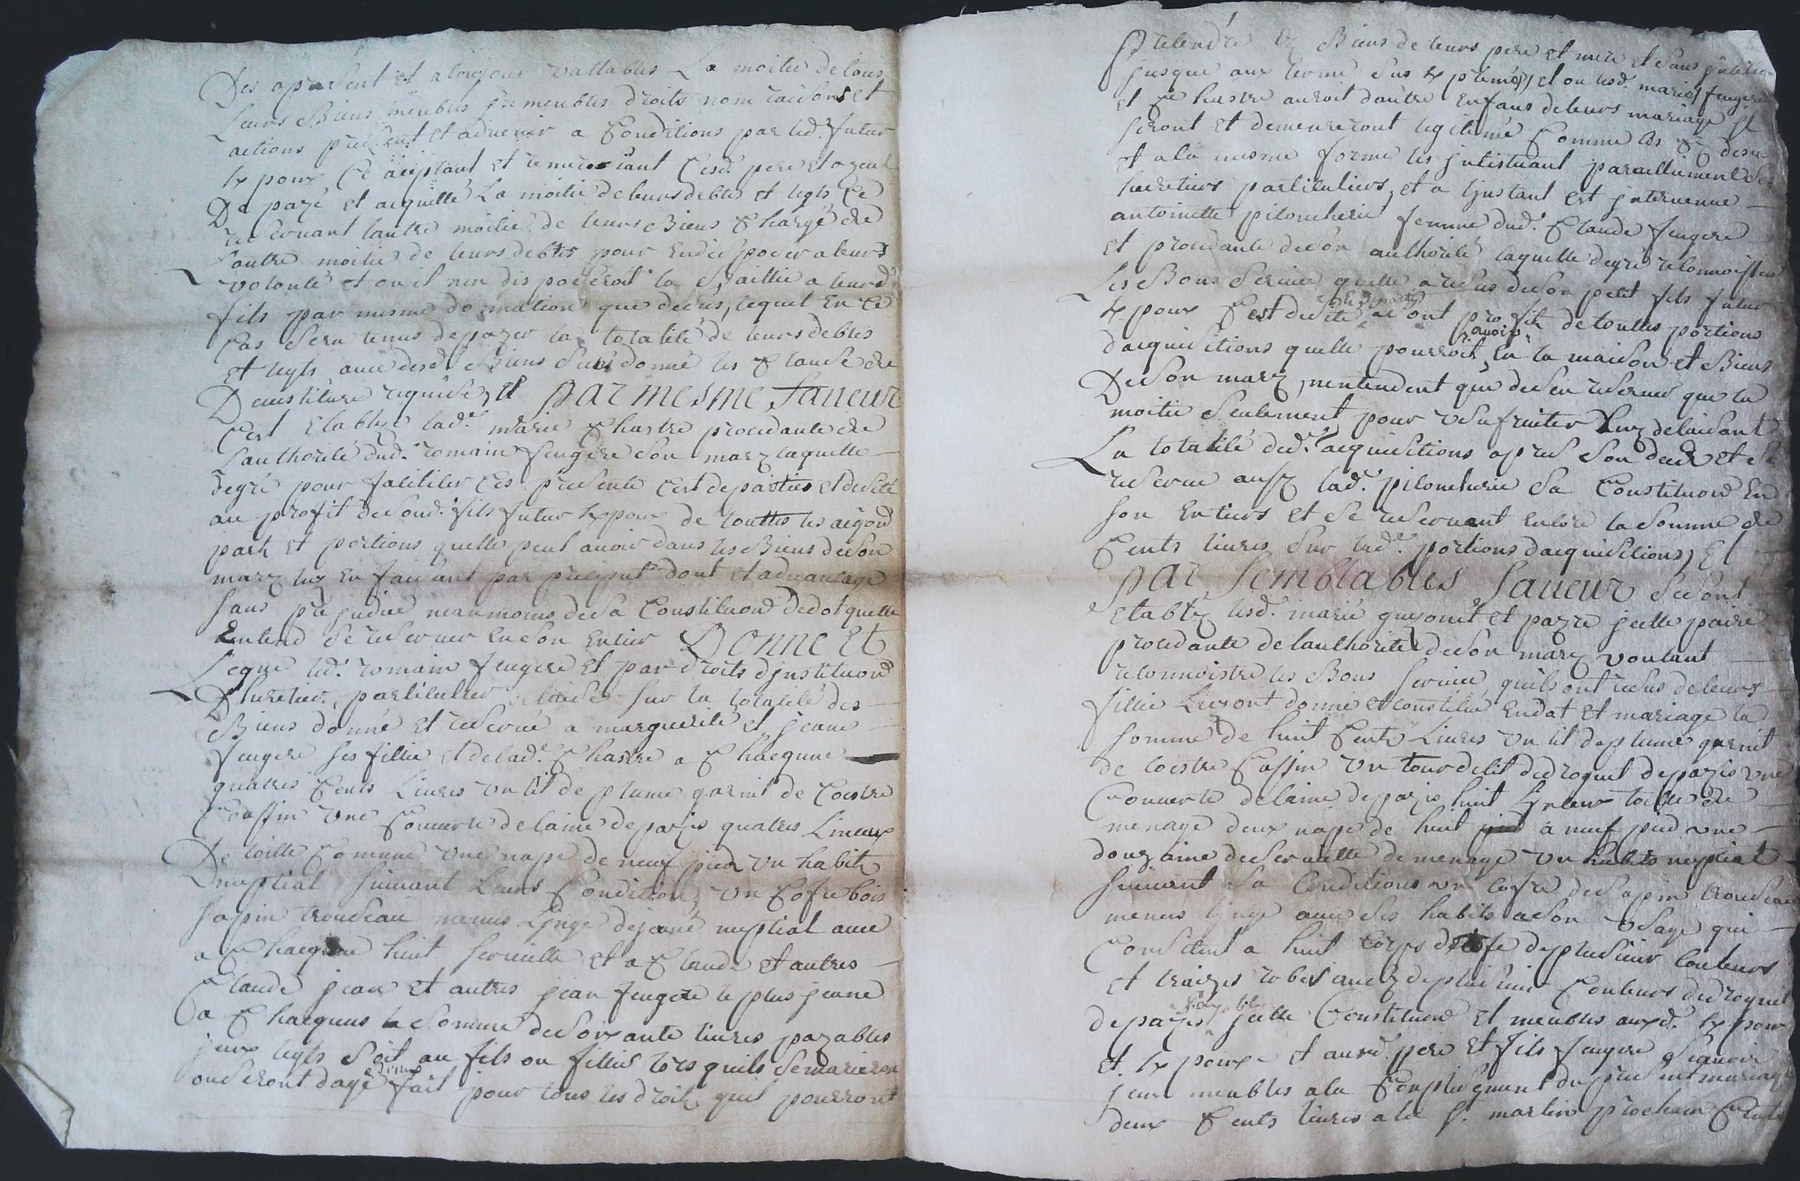 Des apresent et atousjours vallables La moitié de tous
Leurs Biens meubles jmmeubles droits nom raisons et
actions present et advenir a Conditions par led. futur
Expoux Ce aceptant et remerciant Cesd. pere et ayeul
De payé et acquitté La moitié de leurs debtes et legts Ce
reservant lautre moitié de leurs Biens Chargé de
lautre moitié de leurs debtes pour En disposer a leurs
volonté et ou il nen disposeroit la
fils par mesme donnations que dessus, lequel En Ce
Cas sera tenus de payer la totalité de leurs debtes
et legts avec desd. Biens sus donné les Clause de
Demistiture requise, et par mesme faueur
Cest Establye lad.e marie Chastre procedante de
lauthorité dud. romain feugere son mary laquelle
degré pour faliliter Ces presente Cest departies et desité
au profit de sond. fils futur Expoux de touttes les
part et portions quelle peut avoir dans les Biens de son
mary luy En faisant par present dont et advantage
sans prejudice neanmoins de sa Constitution de dot quelle
Entend se reserver En son Entier Donne Et
Legue led. romain feugere et par droits djnstitution
Dheretier particulier a sur la totalité des
Biens donné et reservé a marguerite et jeane
feugere ses fillie et de lad.e Chastre a Chacqune
quatres Cents Livres Un lit de plume garnit de Coestre
Cassin Une Couverte de laine de pazis quatres Linceux
De toille Comune Une nape de neuf pied Un habits
Dnuptial suivant Leurs Condition Un Cofre bois
sapin trousseau menus Linge dejeuné nuptial avec
a Chacqune huit serviette et a Claude et autres
Claude jean et autres jean feugere le plus jeune
a Chacquns la somme de soixante livres payables
jceux legts soit au fils ou fillies lors quils se marieron
ou seront dagé fait pour tous les droits quil pourront
Pretendre Es Biens de leurs pere et mere et sans
jusque aux terme sus Exprimés, et ou lesd. mariés feugere
et Chastre auroit dautre Enfans de leurs mariage
seront et demeureront legitimé Comme les Cy dessus
et a la mesme forme les jnstituant pareilliement
heretiers particuliers, et a Ljnstant est jntervenue
antoinette piloncherie femme dud. Claude feugere
et procedante de son authorité laquelle degré reconnoissant
Les Bons service quelle a reçus de son petit fils futur
Expoux Cest desité a profit de touttes portions
dacquisitions quelle pourroit avoir En la maison et Biens
De son mary, nentendent que de sen reserver que la
moitié seulement pour usufruiter Luy delaisant
La totalité desd. acquisitions apres son deces et se
reserve aussy lad.e piloncherie sa Constitution En
son Entiers et se reservant Encore la somme de
Cents livres sur lesd.es portions dacquisitions, Et
par semblables faveur se sont
Etably lesd. marié quesonet et payre jcelle payre
procedante de lauthorité de son mary voulant
reconnoistre les Bons service quils ont reçus de leurs
fillie Luy ont donné et constitué En dot et mariage la
somme de huit Cents Livres Un lit de plume garnit
de Coestre Cassin Un tour de lit de droguet de pazis une
Couverte de laine de pazis huit Linceux toille de
menage deux nape de huit a neuf pied une
douzaine de serviette de menage Un habits nuptial
suivant sa Conditions un Cofre de sapin trousseau
menus linge avec ses habits a son Usage qui
Consistent a huit Corps destofe de plusieur Couleurs
et traizes robes aussy de plusieur Couleurs de droguet
de pazis jcelle Constitution et meubles auxd. Expoux
et Expouxe et auxd. pere et fils feugere scavoir
jceux meubles a la Complicement du present mariage
deux Cents livres a la St. martin prochain Cents